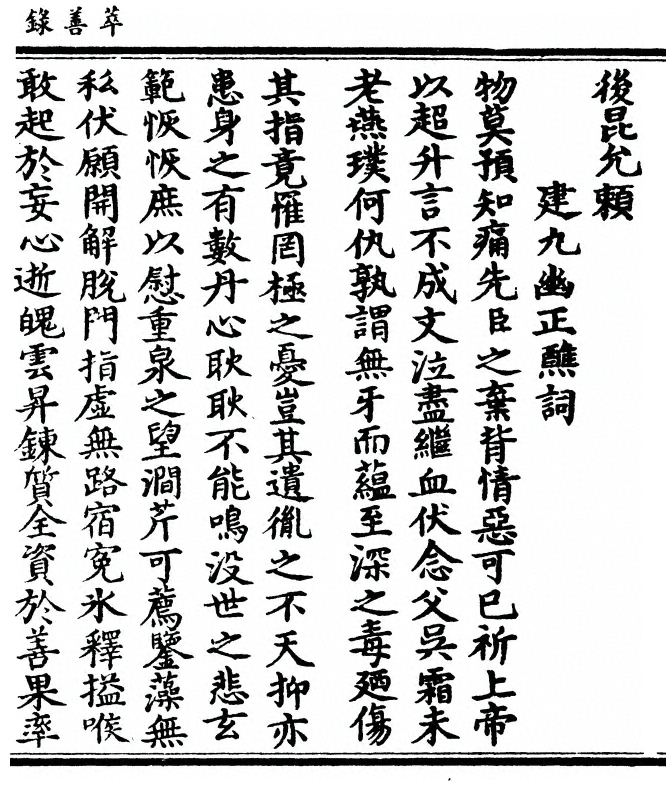 萃善錄
後昆允賴
建九幽正醮詞
物莫預知痛先臣之棄背情惡可已祈上帝
以超升言不成文泣盡繼血伏念父吳霜未
老燕璞何仇孰謂無牙而蘊至深之毒廼傷
其指竟罹罔極之憂豈其遺胤之不天抑亦
患身之有數丹心耿耿不能鳴没世之悲玄
範恢恢庶以慰重泉之望澗芹可薦鑒藻無
私伏願開解脫門指虛無路宿寃氷釋搤喉
敢起於妄心逝魄雲昇鍊質全資於善果率